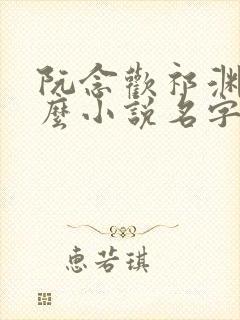 阮念歡祁渊
麼小説名字
惠若琪